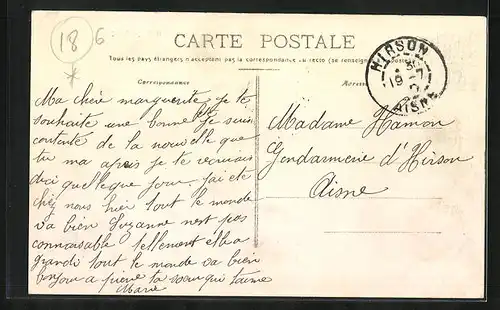 18 6
CARTE POSTALE
Tous les pays étrangers n'acceptent pas la correspondance au recto (se renseigner à la poste)
Correspondance
Adresse
HIRSON
19 -7
AISNE
Ma chère marguerite je te
souhaite une bonne fête je suis
contente de la nouvelle que
tu ma apris je te verrais
dici quelleque jour jai été
chez nous hier tout le monde
va bien Suzanne nest pas
connaisable tellement elle a
grandi tout le monde va bien
bonjour a pierre ta sœur qui t'aime
Marie
Madame Hamon
Gendarmerie d'Hirson
Aisne